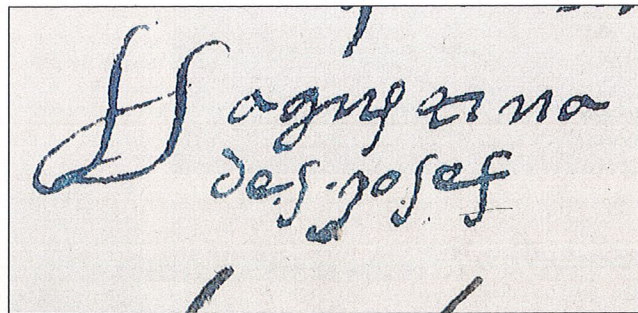 H agustina
de.s.josef